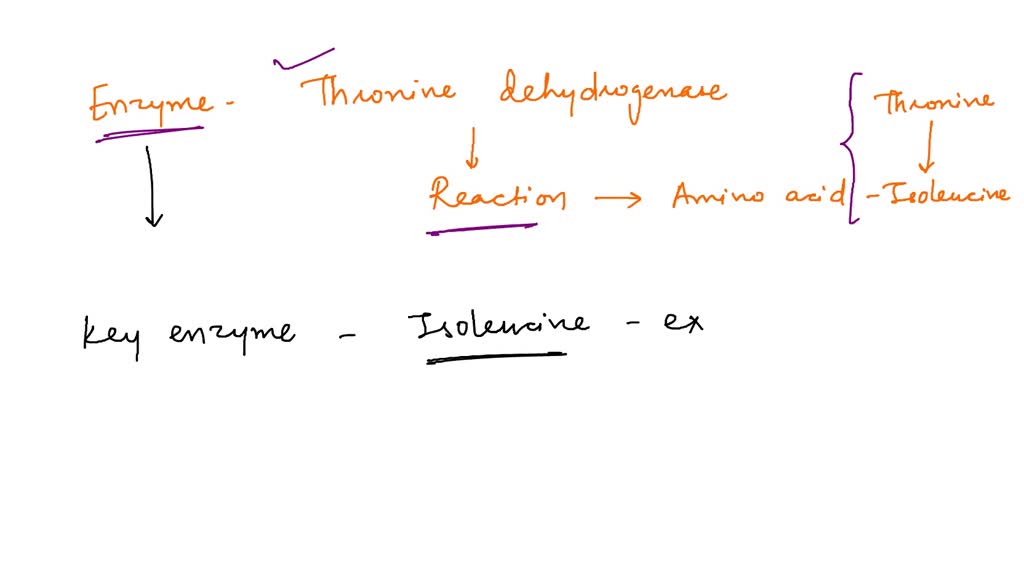 Enzyme - Thronine dehydrogenase
Thronine
Reaction → Amino acid - Isoleucine
Key enzyme - Isoleucine - ex